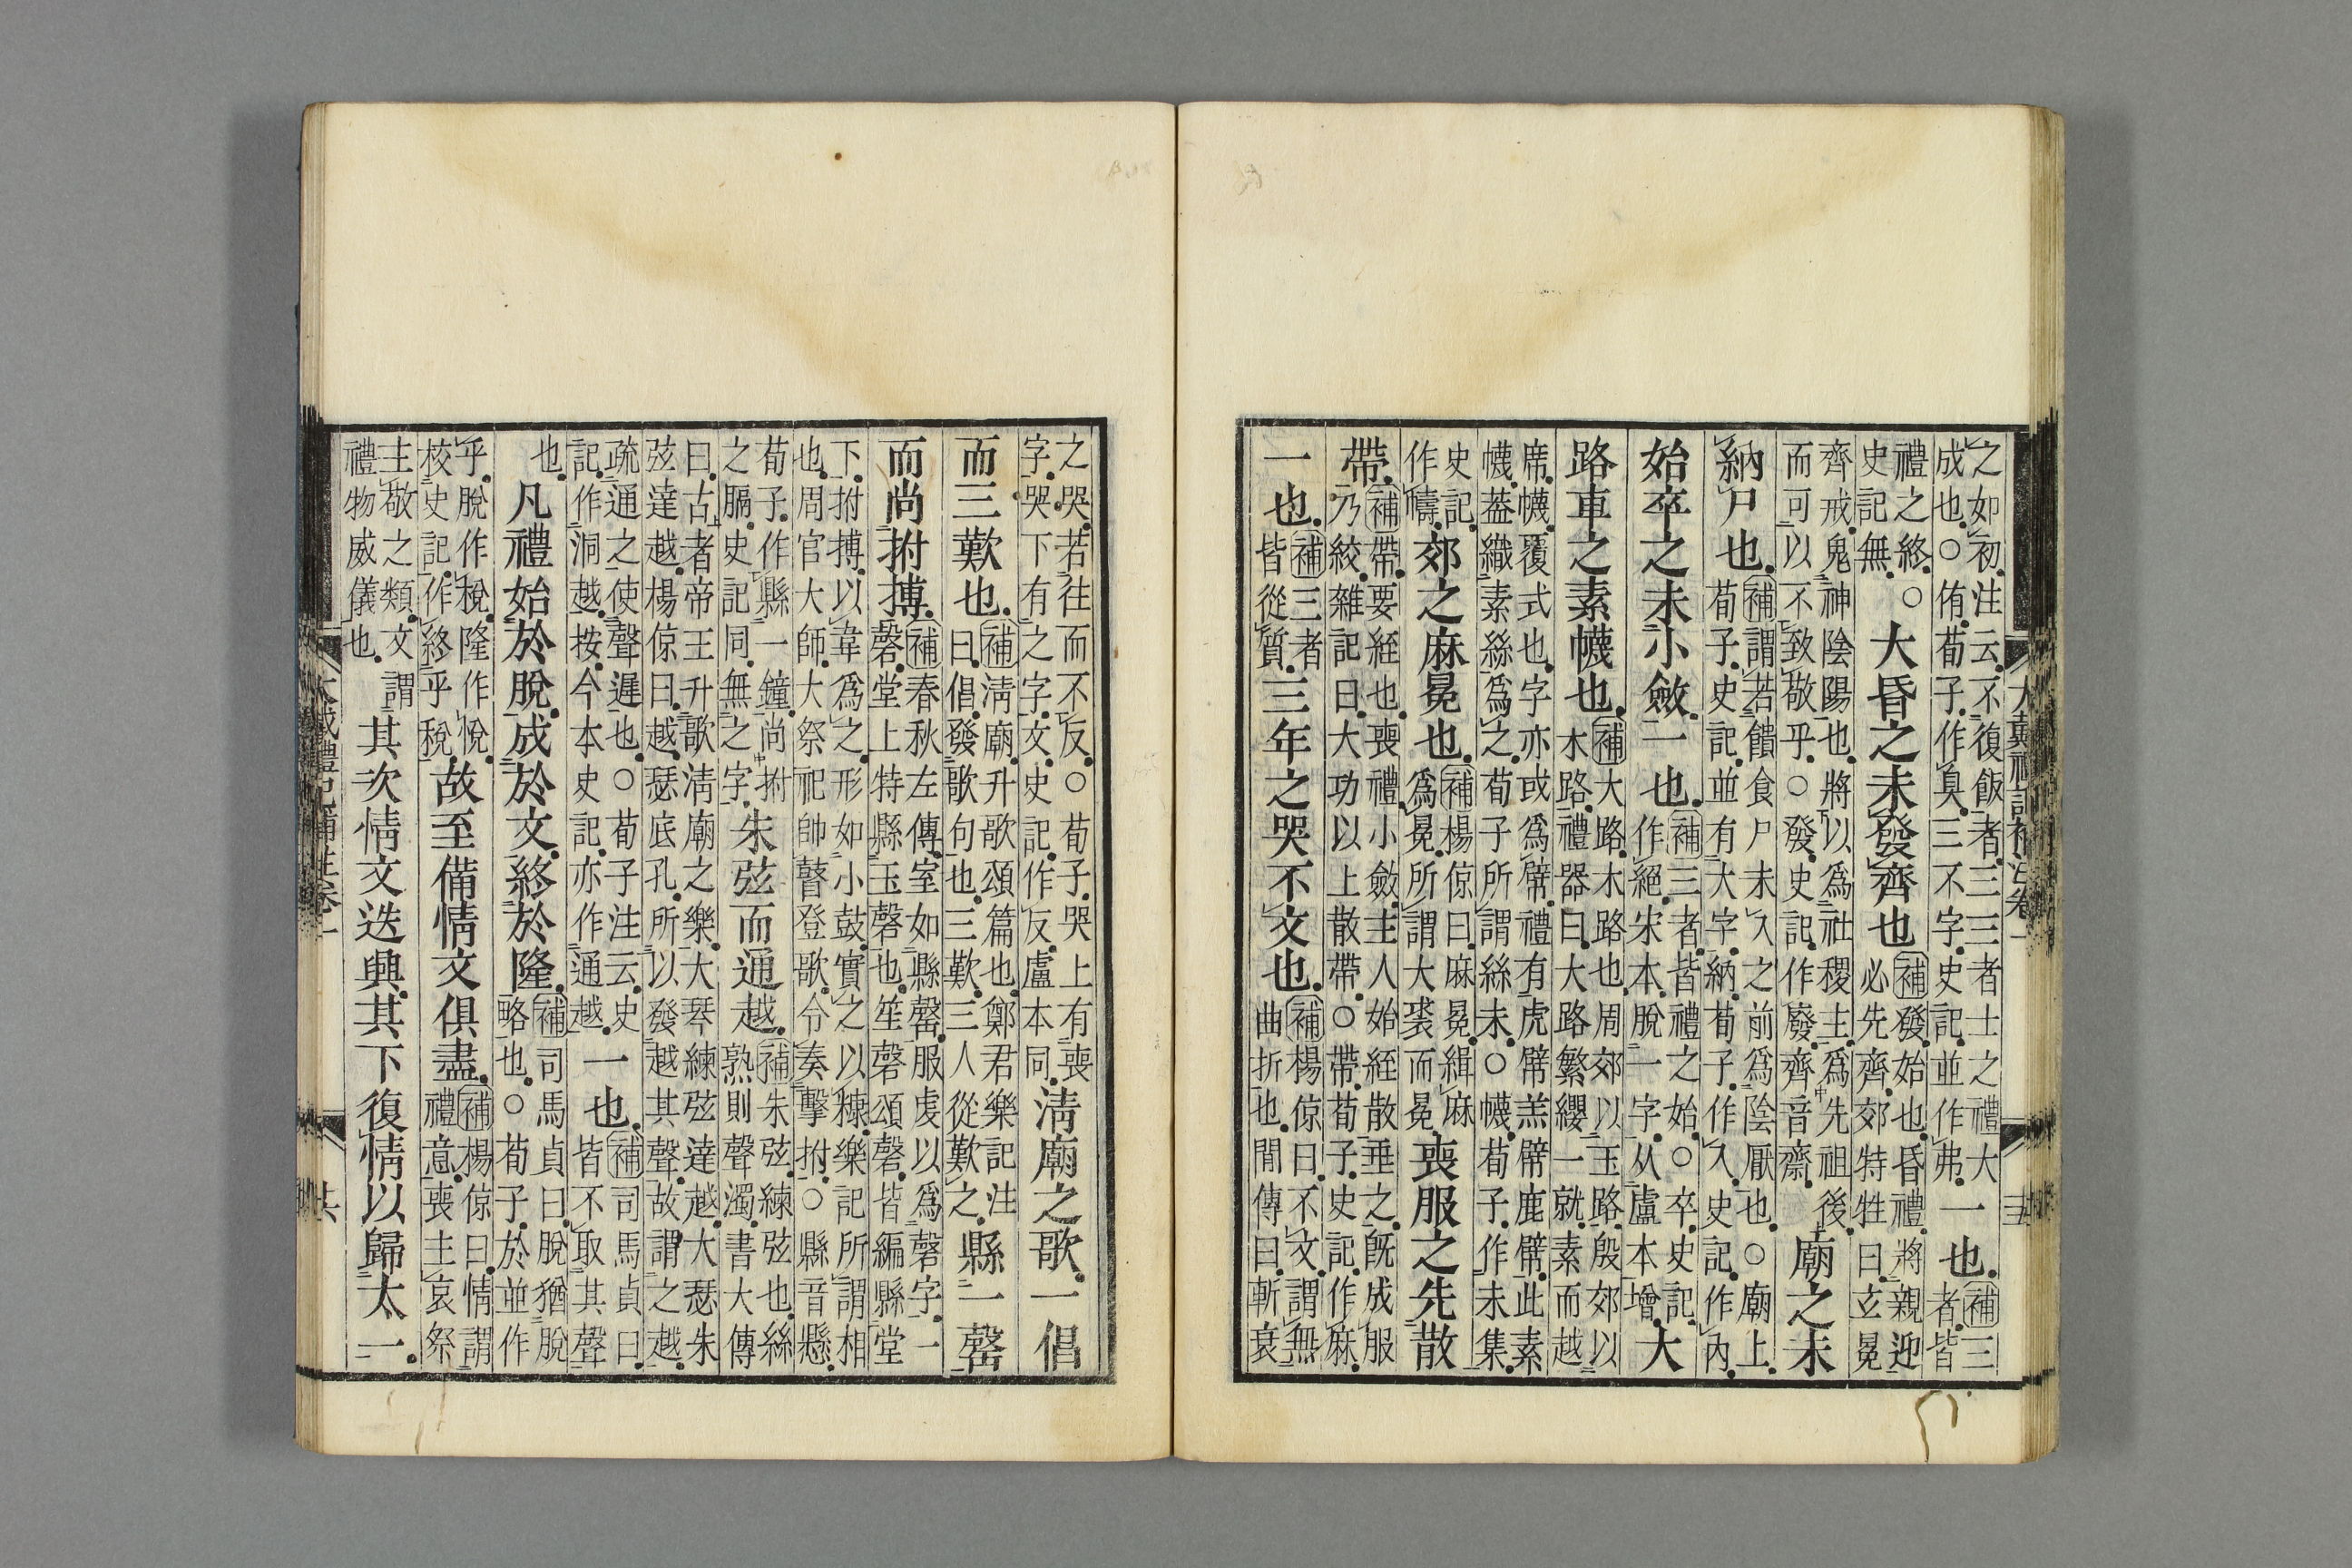 之如初注云不復飯者三三者士之禮大
成也○侑荀子作臭三不字史記並作弗
一也補三
者皆
禮之終
史記無○
大昏之未發齊也補發始也昏禮將親迎
必先齊郊特牲曰玄冕
齊戒鬼神陰陽也將以為社稷主為先祖後
而可以不致敬乎○發史記作廢齊音齋
廟之未
納尸也補謂若饋食尸未入之前爲陰厭也○廟上
荀子史記並有大字納荀子作入史記作內
始卒之未小斂一也補三者皆禮之始○卒史記
作絕宋本脫一字从盧本增
大
路車之素幭也補大路木路也周郊以玉路殷郊以
木路禮器曰大路繁纓一就素而越
席幭覆式也字亦或爲幦禮有虎幦羔幦鹿幦此素
幭葢織素絲爲之荀子所謂絲末○幭荀子作未集
史記
作幬
郊之麻冕也補楊倞曰麻冕緝麻
爲冕所謂大裘而冕
喪服之先散
帶補帶要絰也喪禮小斂主人始絰散垂之旣成服
乃絞雜記曰大功以上散帶○帶荀子史記作麻
一也補三者
皆從質
三年之哭不文也補楊倞曰不文謂無
曲折也閒傳曰斬衰
之哭若往而不反○荀子哭上有喪
字哭下有之字文史記作反盧本同
淸廟之歌一倡
而三歎也補淸廟升歌頌篇也鄭君樂記注
曰倡發歌句也三歎三人從歎之
縣一罄
而尚拊搏補春秋左傳室如縣罄服虔以爲磬字一
磬堂上特縣玉磬也笙磬頌磬皆編縣堂
下拊搏以韋爲之形如小鼓實之以糠樂記所謂相
也周官大師大祭祀帥瞽登歌令奏擊拊○縣音懸
荀子作縣一鐘尚拊
之膈史記同無之字
朱弦而通越補朱弦練弦也絲
熟則聲濁書大傳
曰古者帝王升歌淸廟之樂大琴練弦達越大瑟朱
弦達越楊倞曰越瑟底孔所以發越其聲故謂之越
疏通之使聲遲也○荀子注云史
記作洞越按今本史記亦作通越
一也補司馬貞曰
皆不取其聲
也
凡禮始於脫成於文終於隆補司馬貞曰脫猶脫
略也○荀子於並作
乎脫作稅隆作悅
校史記作終乎稅
故至備情文俱盡補楊倞曰情謂
禮意喪主哀祭
主敬之類文謂
禮物威儀也
其次情文迭興其下復情以歸太一
大戴禮記補注卷一